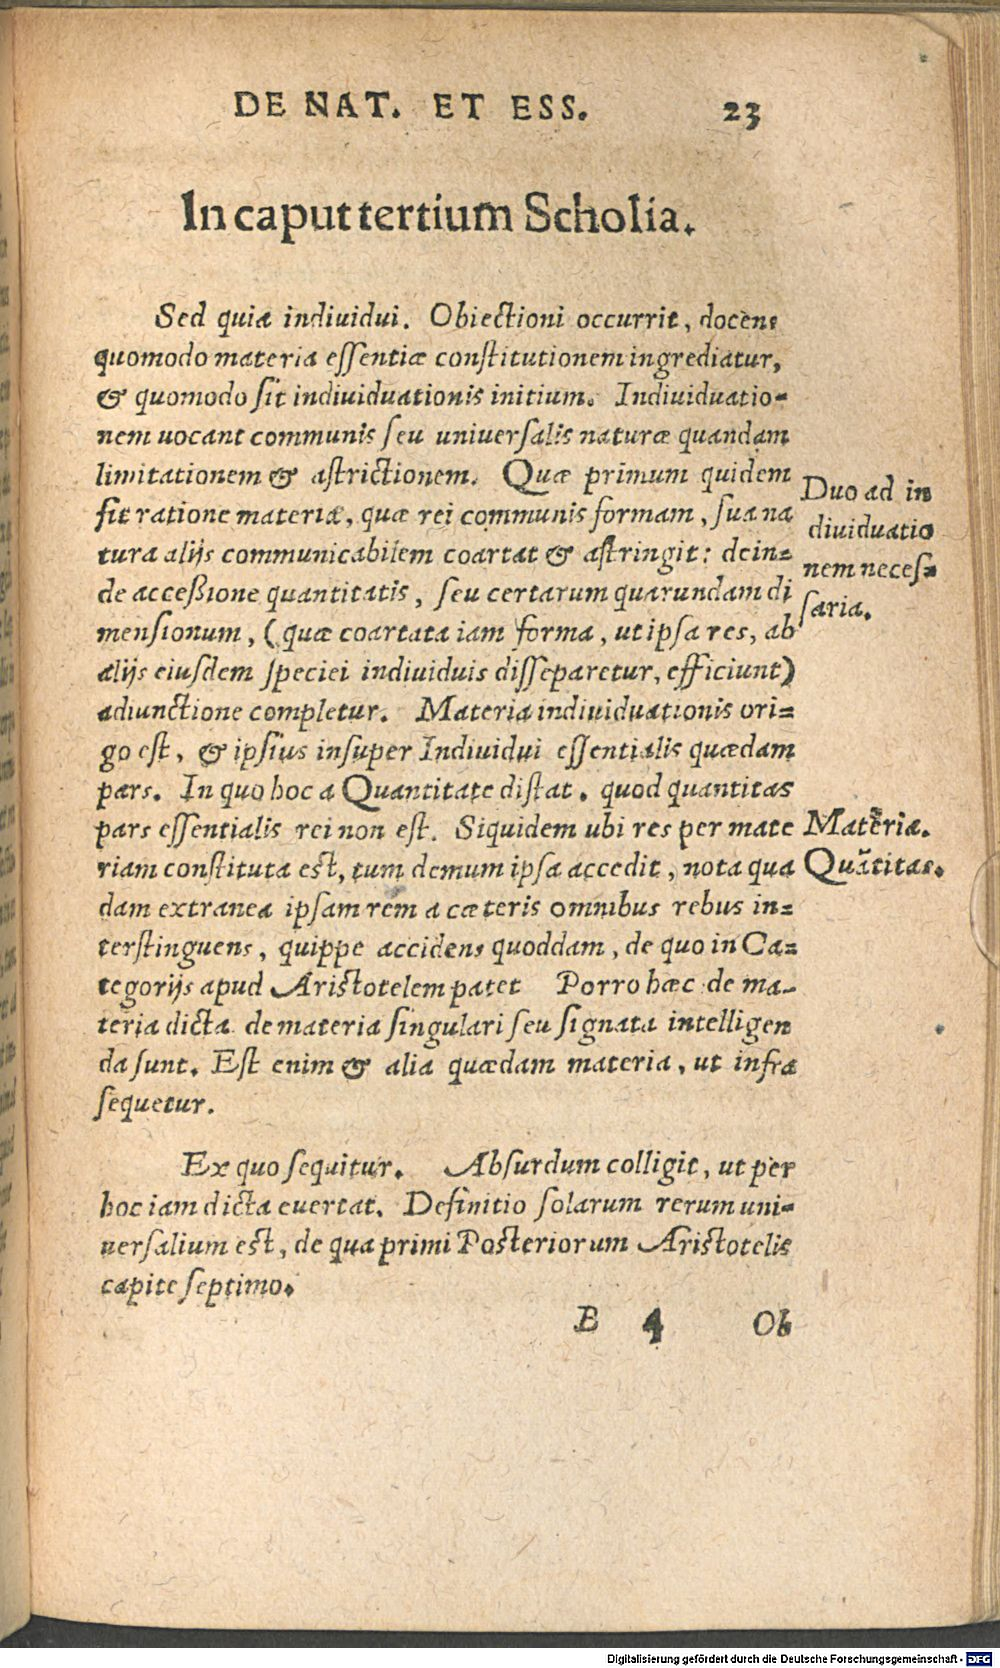 DE NAT. ET ESS. 23
In caput tertium Scholia.
Sed quia individui. Obiectioni occurrit, docens
quomodo materia essentiæ constitutionem ingrediatur,
& quomodo sit individuationis initium. Individuatio-
nem vocant communis seu universalis naturæ quandam
limitationem & astrictionem. Quæ primum quidem
fit ratione materiæ, quæ rei communis formam, sua na
tura alijs communicabilem coartat & astringit: dein-
de accessione quantitatis, seu certarum quarundam di
mensionum, (quæ coartata iam forma, ut ipsa res, ab
alijs eiusdem speciei individuis disseparetur, efficiunt)
adiunctione completur. Materia individuationis ori-
go est, & ipsius insuper Individui essentialis quædam
pars. In quo hoc a Quantitate distat. quod quantitas
pars essentialis rei non est. Siquidem ubi res per mate
riam constituta est, tum demum ipsa accedit, nota qua
dam extranea ipsam rem a cæteris omnibus rebus in-
terstinguens, quippe accidens quoddam, de quo in Ca-
tegorijs apud Aristotelem patet Porro hæc de ma-
teria dicta de materia singulari seu signata intelligen
da sunt. Est enim & alia quædam materia, ut infra
sequetur.
Duo ad in
dividuatio
nem neces-
saria.
Materia.
Quãtitas.
Ex quo sequitur. Absurdum colligit, ut per
hoc iam dicta evertat. Definitio solarum rerum uni-
versalium est, de qua primi Posteriorum Aristotelis
capite septimo.
B 4 Ob
Digitalisierung gefördert durch die Deutsche Forschungsgemeinschaft - DFG